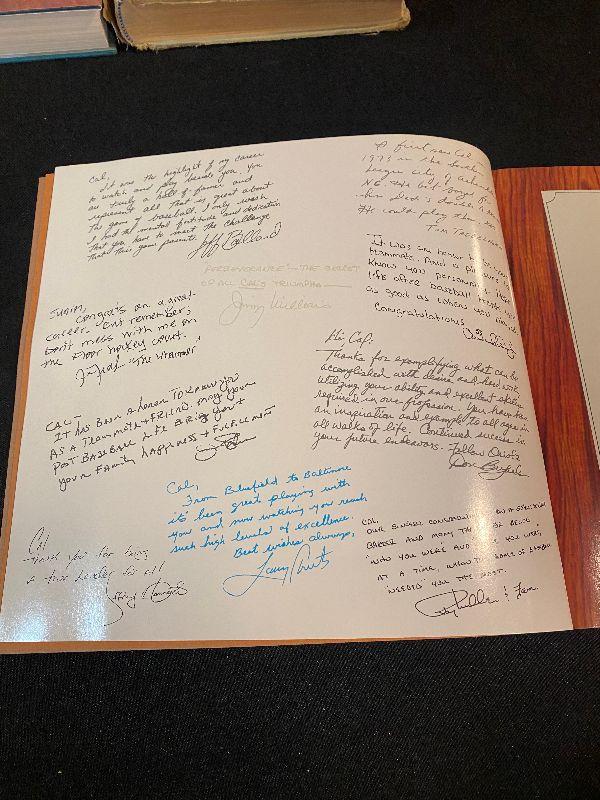 Cal,
It was the highlight of my career
to watch and play beside you. You
are truly a hall of famer and
represent all that is great about
the game of baseball. I only wish
I had the mental fortitude and dedication
that you have to meet the challenge
that this game presents.
Jeff
PERSEVERANCE - THE SECRET
OF ALL CAL'S TRIUMPHS
Jimy Williams
Congrats on a great
career. But remember,
Don't mess with me on
the floor hockey court.
CAL-
IT HAS BEEN A HONOR TO KNOW YOU
AS A TEAMMATE + FRIEND. MAY YOUR
POST BASEBALL LIFE BRING YOU +
YOUR FAMILY HAPPINESS + FULFILLMENT
Cal
Thank you for being
a true leader for all
Cal,
From Bluefield to Baltimore
it's been great playing with
you and now watching you reach
such high levels of excellence.
Best wishes always,
Larry Sheets
A first saw Cal
1973 in the
league city of Asheville
N.C.
He could play then too
It was an honor to be your
teammate. And a pleasure to
know you personally. Hope
life after baseball treats you
as good as when you
Congratulations
Hi, Cal:
Thanks for exemplifying what can be
accomplished with desire and hard work
utilizing your ability and excellent skills
required in our profession. You have been
an inspiration and example to all ages in
all walks of life. Continued success in
your future endeavors. Fellow Oriole
Don Buford
CAL,
OUR SINCERE CONGRATULATIONS ON A
CAREER AND MANY THANKS FOR BEING
"WHO YOU WERE AND WHAT YOU WERE"
AT A TIME, WHEN THE GAME OF BASEBALL
"NEEDED" YOU THE MOST.
& Fam